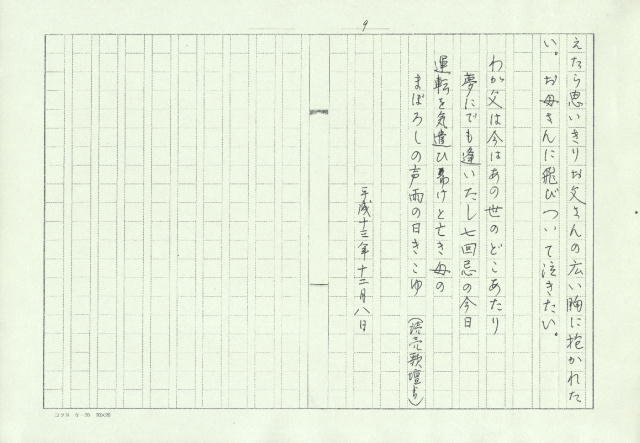 9
えたら思いきりお父さんの広い胸に抱かれた
い。お母さんに飛びついて泣きたい。
わが父は今はあの世のどこあたり
夢にでも逢いたし七回忌の今日
運転を気遣ひ着けと亡き母の
まぼろしの声雨の日きこゆ
(読売歌壇より)
平成十三年十二月八日
コクヨ ケ-35 20×20